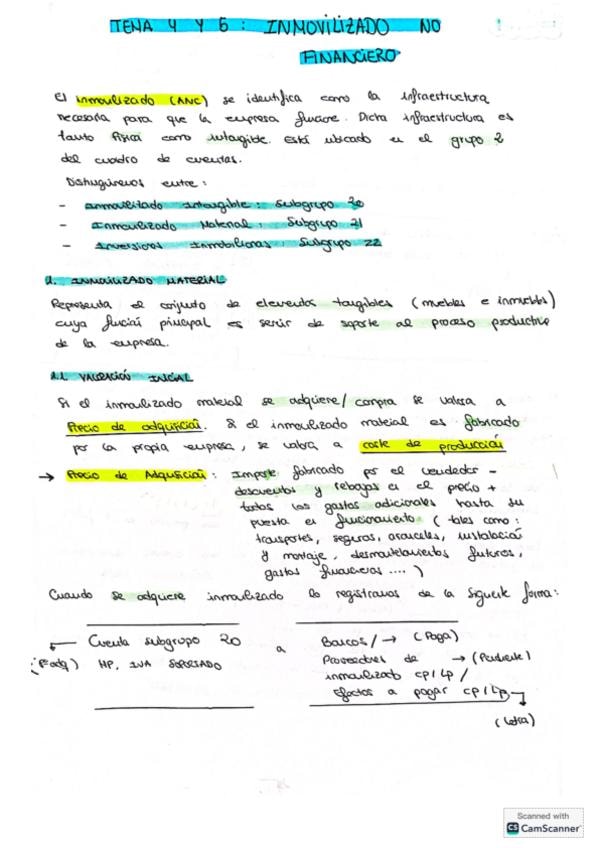 TEMA 4 Y 5 : INMOVILIZADO NO
FINANCIERO
El inmovilizado (ANC) se identifica como la infraestructura
necesaria para que la empresa funcione. Dicta infraestructura es
tanto física como intangible. Está ubicado en el grupo 2
del cuadro de cuentas.
Distinguiremos entre :
- Inmovilizado Intangible : Subgrupo 20
- Inmovilizado Material : Subgrupo 21
- Inversiones Inmobiliarias : Subgrupo 22
1. INMOVILIZADO MATERIAL
Representa el conjunto de elementos tangibles (muebles e inmuebles)
cuya función principal es servir de soporte al proceso productivo
de la empresa.
1.1. VALORACIÓN INICIAL
Si el inmovilizado material se adquiere/ compra se valora a
Precio de adquisición. Si el inmovilizado material es fabricado
por la propia empresa, se valora a coste de producción
→ Precio de Adquisición : Importe fabricado por el vendedor -
descuentos y rebajas en el precio +
todos los gastos adicionales hasta su
puesta en funcionamiento ( tales como :
transportes, seguros, aranceles, instalación
y montaje, desmantelamientos futuros,
gastos financieros .... )
Cuando se adquiere inmovilizado lo registramos de la siguiente forma:
← Cuenta subgrupo 20 a Bancos / → (Paga)
(Pº adq) HP, IVA SOPORTADO Proveedores de → (Pendiente)
inmovilizado cp / lp /
Efectos a pagar cp / lp
(letra)
Scanned with
CS CamScanner